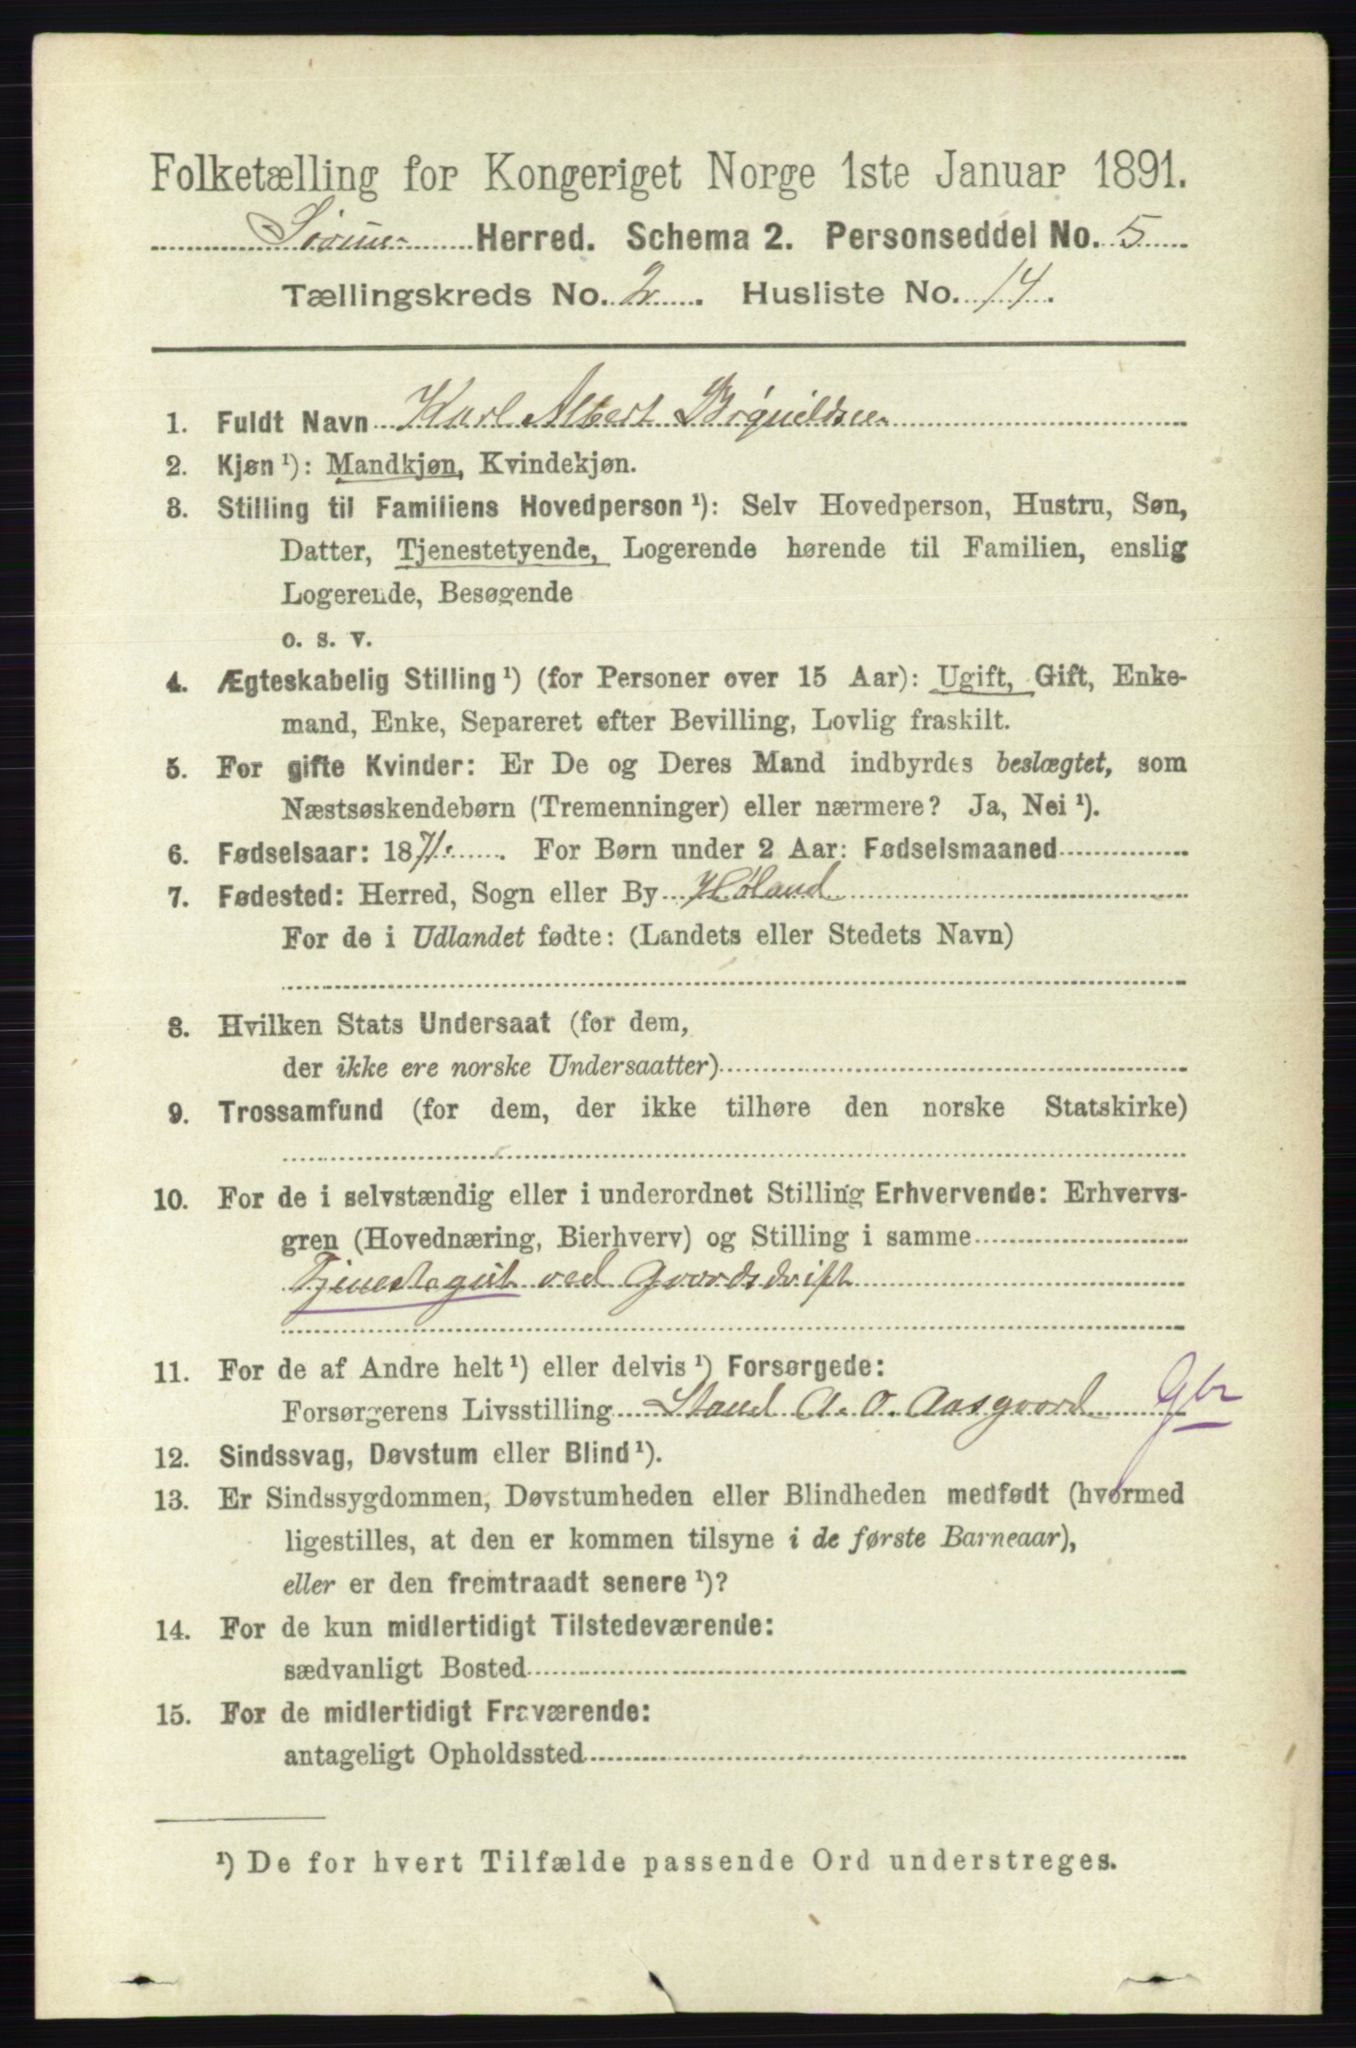 Folketælling for Kongeriget Norge 1ste Januar 1891.
Sørum Herred. Schema 2. Personseddel No. 5
Tællingskreds No. 2. Husliste No. 14.
1. Fuldt Navn Karl Albert
2. Kjøn ¹): Mandkjøn, Kvindekjøn.
3. Stilling til Familiens Hovedperson ¹): Selv Hovedperson, Hustru, Søn,
Datter, Tjenestetyende, Logerende hørende til Familien, enslig
Logerende, Besøgende
o. s. v.
4. Ægteskabelig Stilling ¹) (for Personer over 15 Aar): Ugift, Gift, Enke-
mand, Enke, Separeret efter Bevilling, Lovlig fraskilt.
5. For gifte Kvinder: Er De og Deres Mand indbyrdes beslægtet, som
Næstsøskendebørn (Tremenninger) eller nærmere? Ja, Nei ¹).
6. Fødselsaar: 1871. For Børn under 2 Aar: Fødselsmaaned
7. Fødested: Herred, Sogn eller By Høland
For de i Udlandet fødte: (Landets eller Stedets Navn)
8. Hvilken Stats Undersaat (for dem,
der ikke ere norske Undersaatter)
9. Trossamfund (for dem, der ikke tilhøre den norske Statskirke)
10. For de i selvstændig eller i underordnet Stilling Erhvervende: Erhvervs-
gren (Hovednæring, Bierhverv) og Stilling i samme
Tjenestegut ved Gaardsdrift
11. For de af Andre helt ¹) eller delvis ¹) Forsørgede:
Forsørgerens Livsstilling A. O. Aasgaard Gbr
12. Sindssvag, Døvstum eller Blind ¹).
13. Er Sindssygdommen, Døvstumheden eller Blindheden medfødt (hvormed
ligestilles, at den er kommen tilsyne i de første Barneaar),
eller er den fremtraadt senere ¹)?
14. For de kun midlertidigt Tilstedeværende:
sædvanligt Bosted
15. For de midlertidigt Fraværende:
antageligt Opholdssted
¹) De for hvert Tilfælde passende Ord understreges.